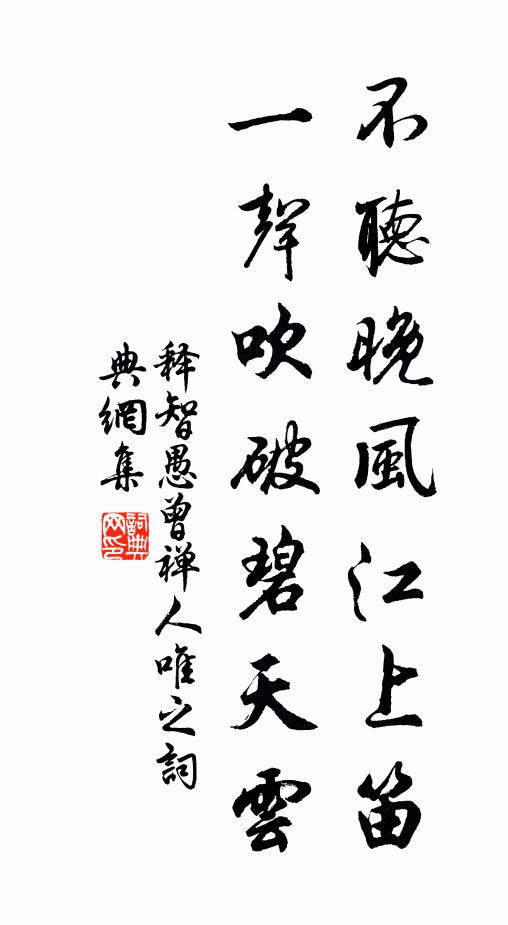 不聽晚風江上笛
一聲吹破碧天雲
释智愚曾禅人唯之詞
典網集
詞典網印